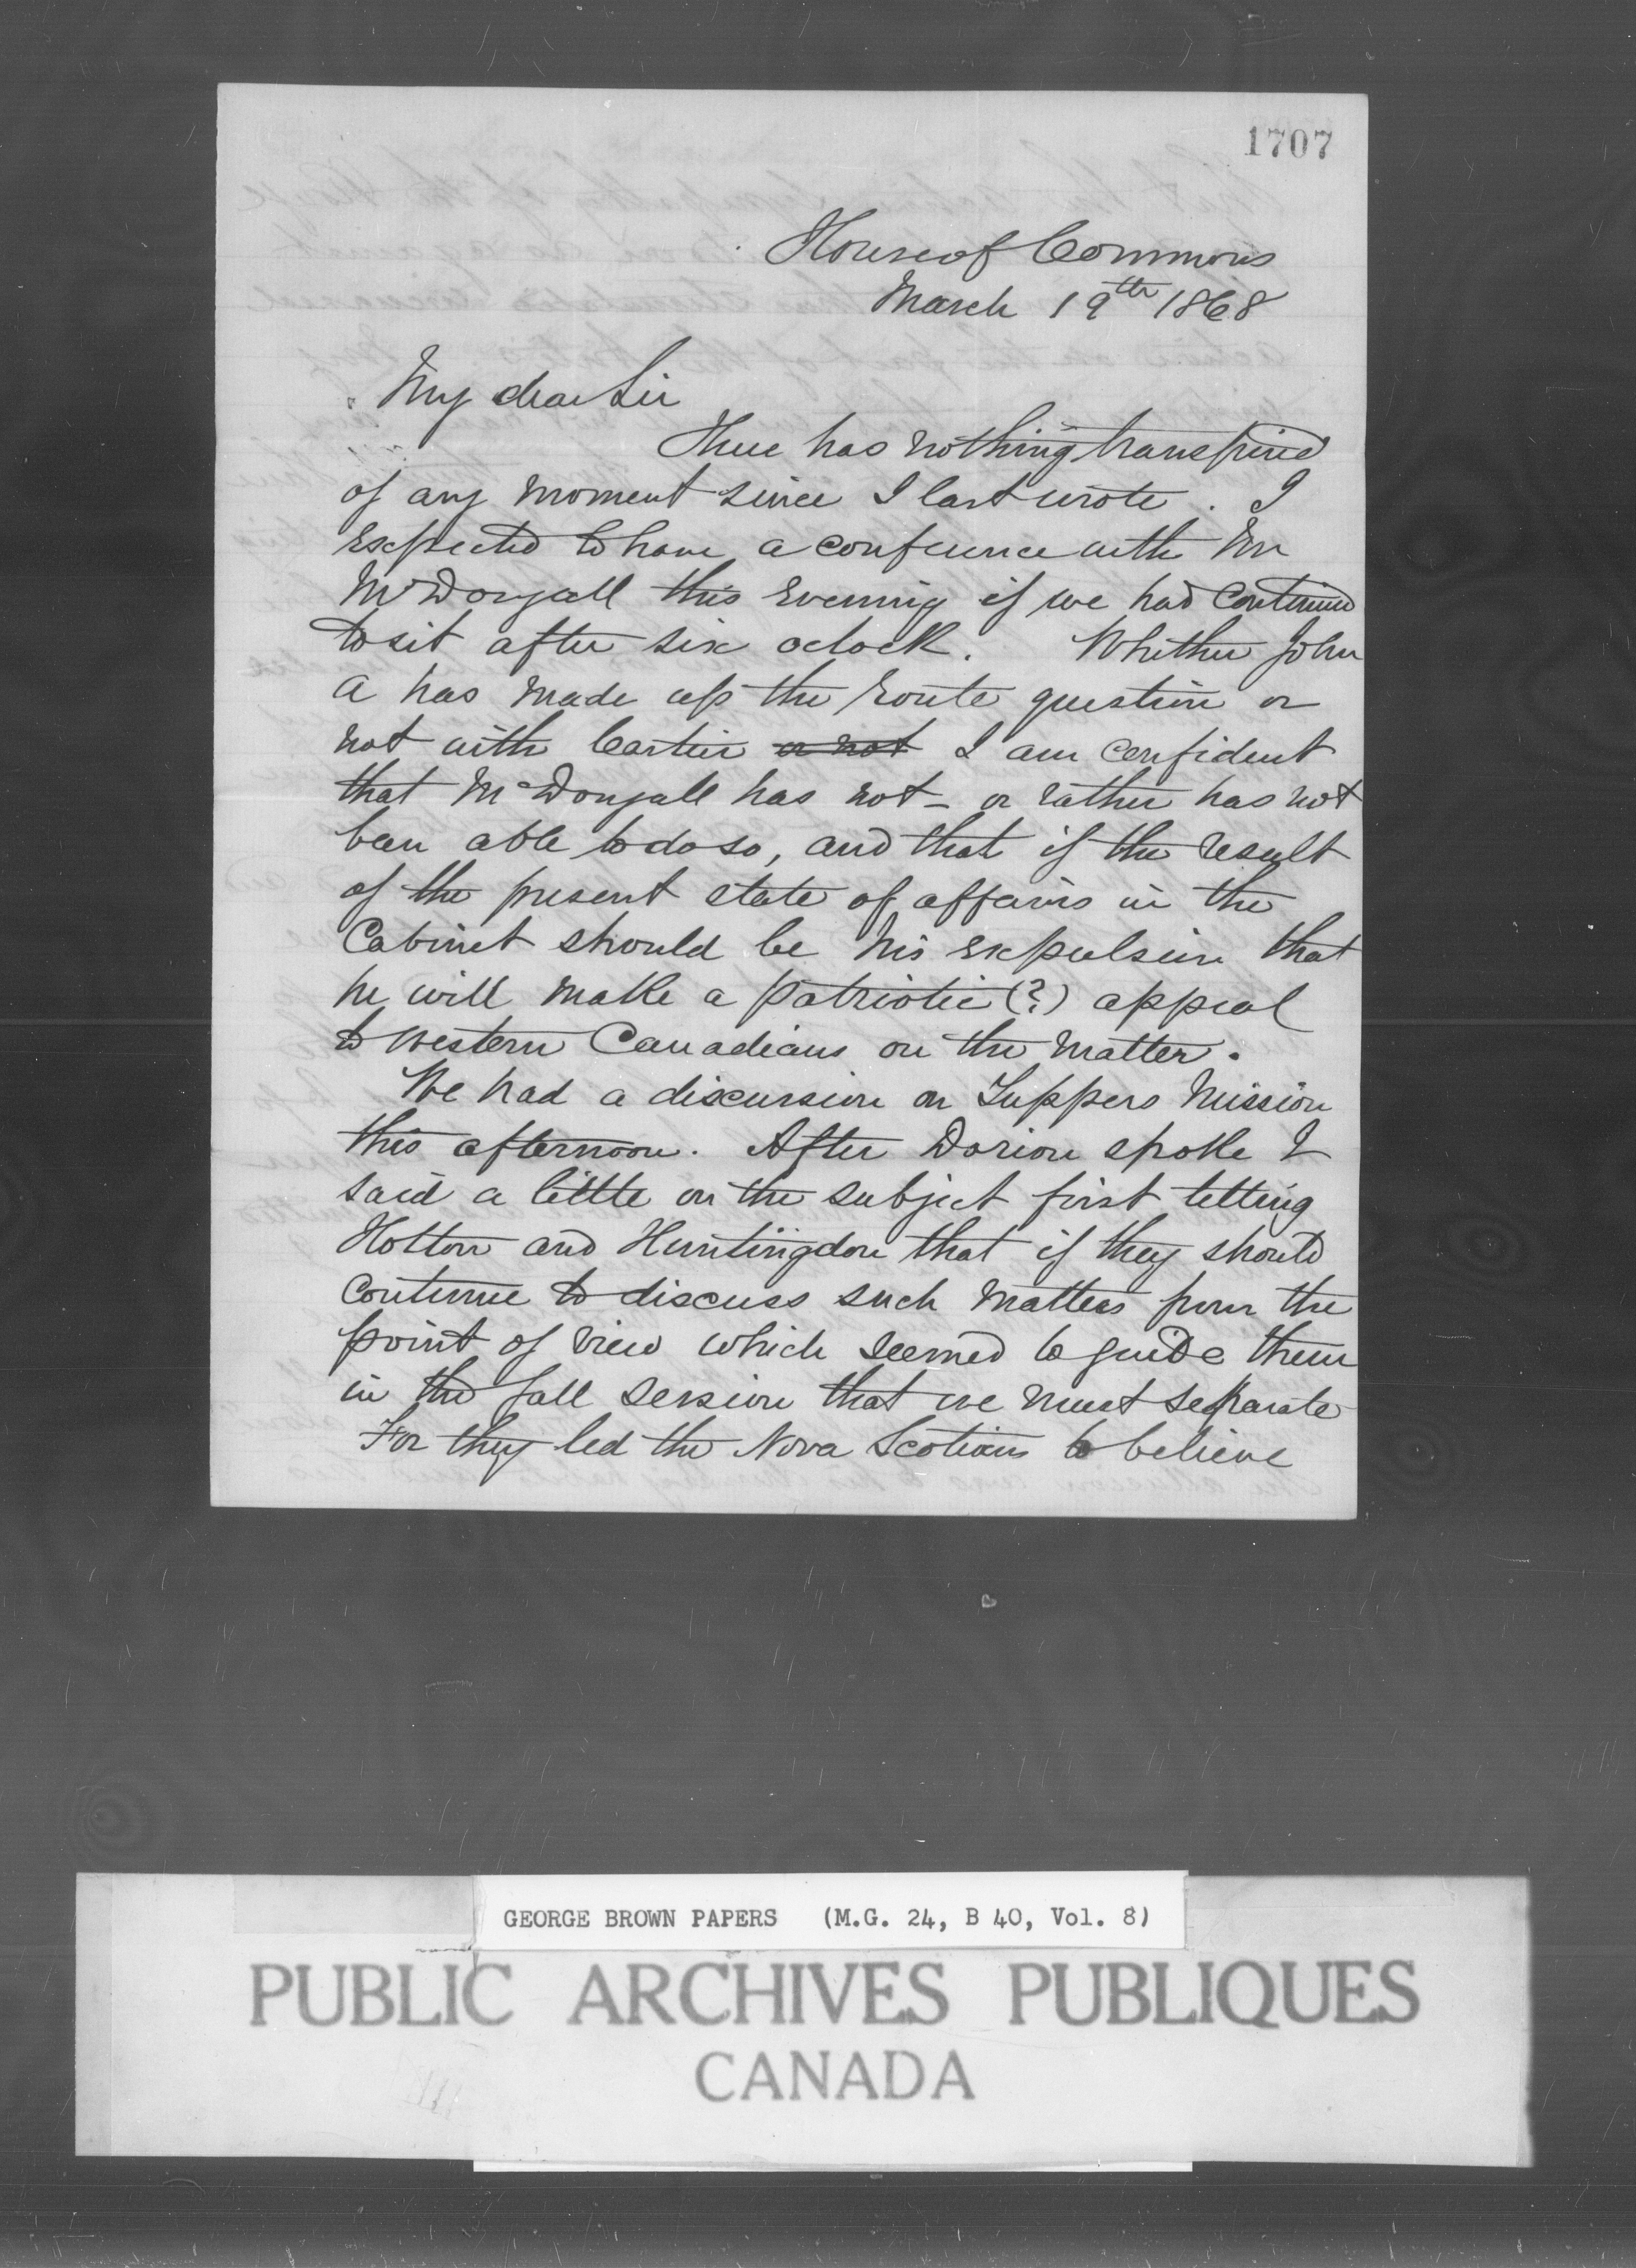 1707
House of Commons
March 19th 1868
My dear Sir
There has nothing transpired
of any moment since I last wrote. I
expected to have a conference with Mr
McDougall this evening if we had continued
to sit after six oclock. Whether John
A has made up the route question or
not with Cartier or not I am confident
that McDougall has not - or rather has not
been able to do so, and that if the result
of the present state of affairs in the
Cabinet should be his expulsion that
he will make a patriotic (?) appeal
to Western Canadians on the matter.
We had a discussion on Tuppers Mission
this afternoon. After Dorion spoke I
said a little on the subject first telling
Holton and Huntingdon that if they should
continue to discuss such matters from the
point of view which seemed to guide them
in the fall session that we must separate
For they led the Nova Scotians to believe
GEORGE BROWN PAPERS (M.G. 24, B 40, Vol. 8)
PUBLIC ARCHIVES PUBLIQUES
CANADA